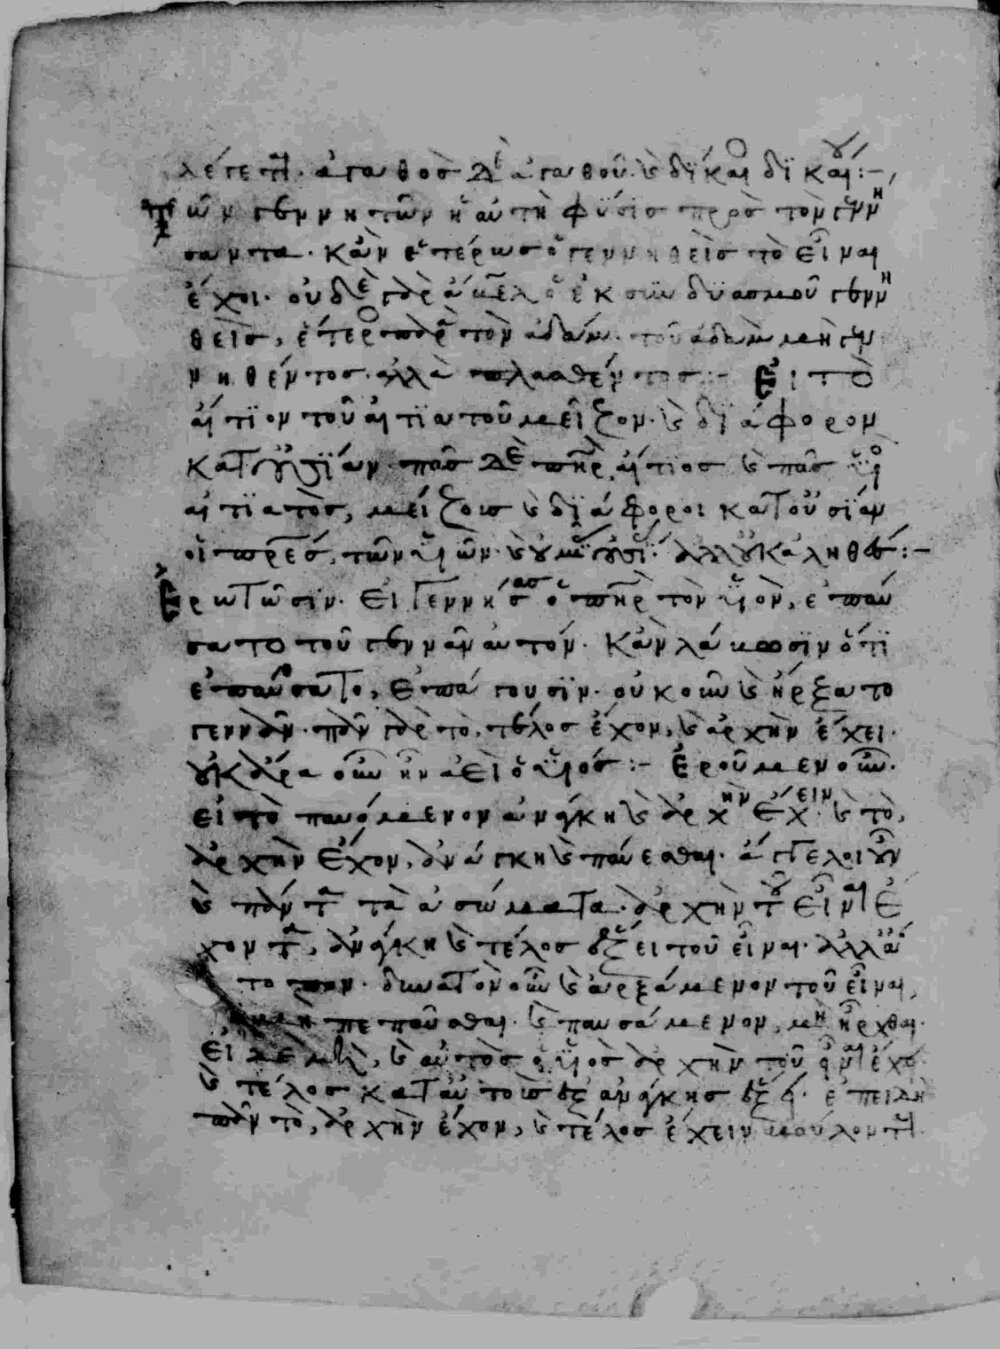 λέγεται. ἀγαθὸς δὲ ἀγαθοῦ. καὶ δίκαιος δικαίου:-
Τῶν γεννητῶν ἡ αὐτὴ φύσις πρὸς τὸν γεννή
σαντα. κἂν ἑτέρως ὁ γεννηθεὶς τὸ εἶναι
ἔχοι. οὐδὲ γὰρ ἄβελ ὁ ἐκ συνδυασμοῦ γεννη
θεὶς, ἕτερος παρὰ τὸν ἀδάμ. τοῦ ἀδὰμ μὴ γεν
νηθέντος. ἀλλὰ πλασθέντος:- Εἰ τὸ
αἴτιον τοῦ αἰτιατοῦ μεῖζον. καὶ διάφορον
κατουσίαν. πᾶς δὲ πατὴρ αἴτιος καὶ πᾶς υἱὸς
αἰτιατὸς, μείζους καὶ διάφοροι κατουσίαν
οἱ πατέρες, τῶν υἱῶν. καὶ οὐχ ὁμοούσιοι. ἀλλ' οὐκ ἀληθές:-
Ἐρωτῶσιν. εἰ γεννήσας ὁ πατὴρ τὸν υἱὸν, ἐπαύ
σατο τοῦ γεννᾶν αὐτόν. κἂν λάβωσιν ὅτι
ἐπαύσατο, ἐπάγουσιν. οὐκοῦν καὶ ἤρξατο
γεννᾶν. πᾶν γὰρ τὸ, τέλος ἔχον, καὶ ἀρχὴν ἔχει.
οὐκ ἄρα οὖν ἦν ἀεὶ ὁ υἱός:- Ἐροῦμεν οὖν.
εἰ τὸ παυόμενον ἀνάγκη καὶ ἀρχὴν ἔχειν. καὶ τὸ,
ἀρχὴν ἔχον, ἀνάγκη καὶ παύεσθαι. ἄγγελοι οὖν
καὶ πάντα τὰ ἀσώματα. ἀρχὴν τοῦ εἶναι ἔ
χοντα, ἀνάγκη καὶ τέλος ἕξει τοῦ εἶναι. ἀλλ'
ἄτοπον. δυνατὸν οὖν καὶ ἀρξάμενον τοῦ εἶναι,
μὴ πεπαῦσθαι. καὶ παυσάμενον, μὴ ἦρχθαι.
εἰ δὲ μὴ, καὶ αὐτὸς ὁ υἱὸς ἀρχὴν τοῦ εἶναι ἔχων
καὶ τέλος κατ' αὐτοὺς ἐξ ἀνάγκης ἕξει. ἐπειδὴ
πᾶν τὸ, ἀρχὴν ἔχον, καὶ τέλος ἔχειν βούλονται.